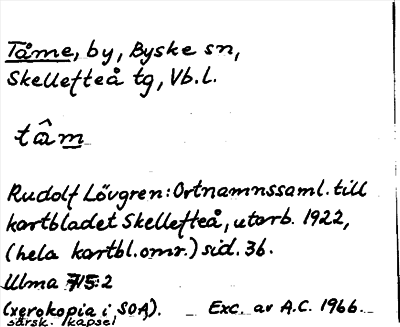 Tåme, by, Byske sn,
Skellefteå tg, Vb.l.
tâm
Rudolf Lövgren: Ortnamnssaml. till
kartbladet Skellefteå, utarb. 1922,
(hela kartbl.omr.) sid. 36.
Ulma 715:2
(xerokopia i SOA). Exc. av A.C. 1966.
särsk. kapsel